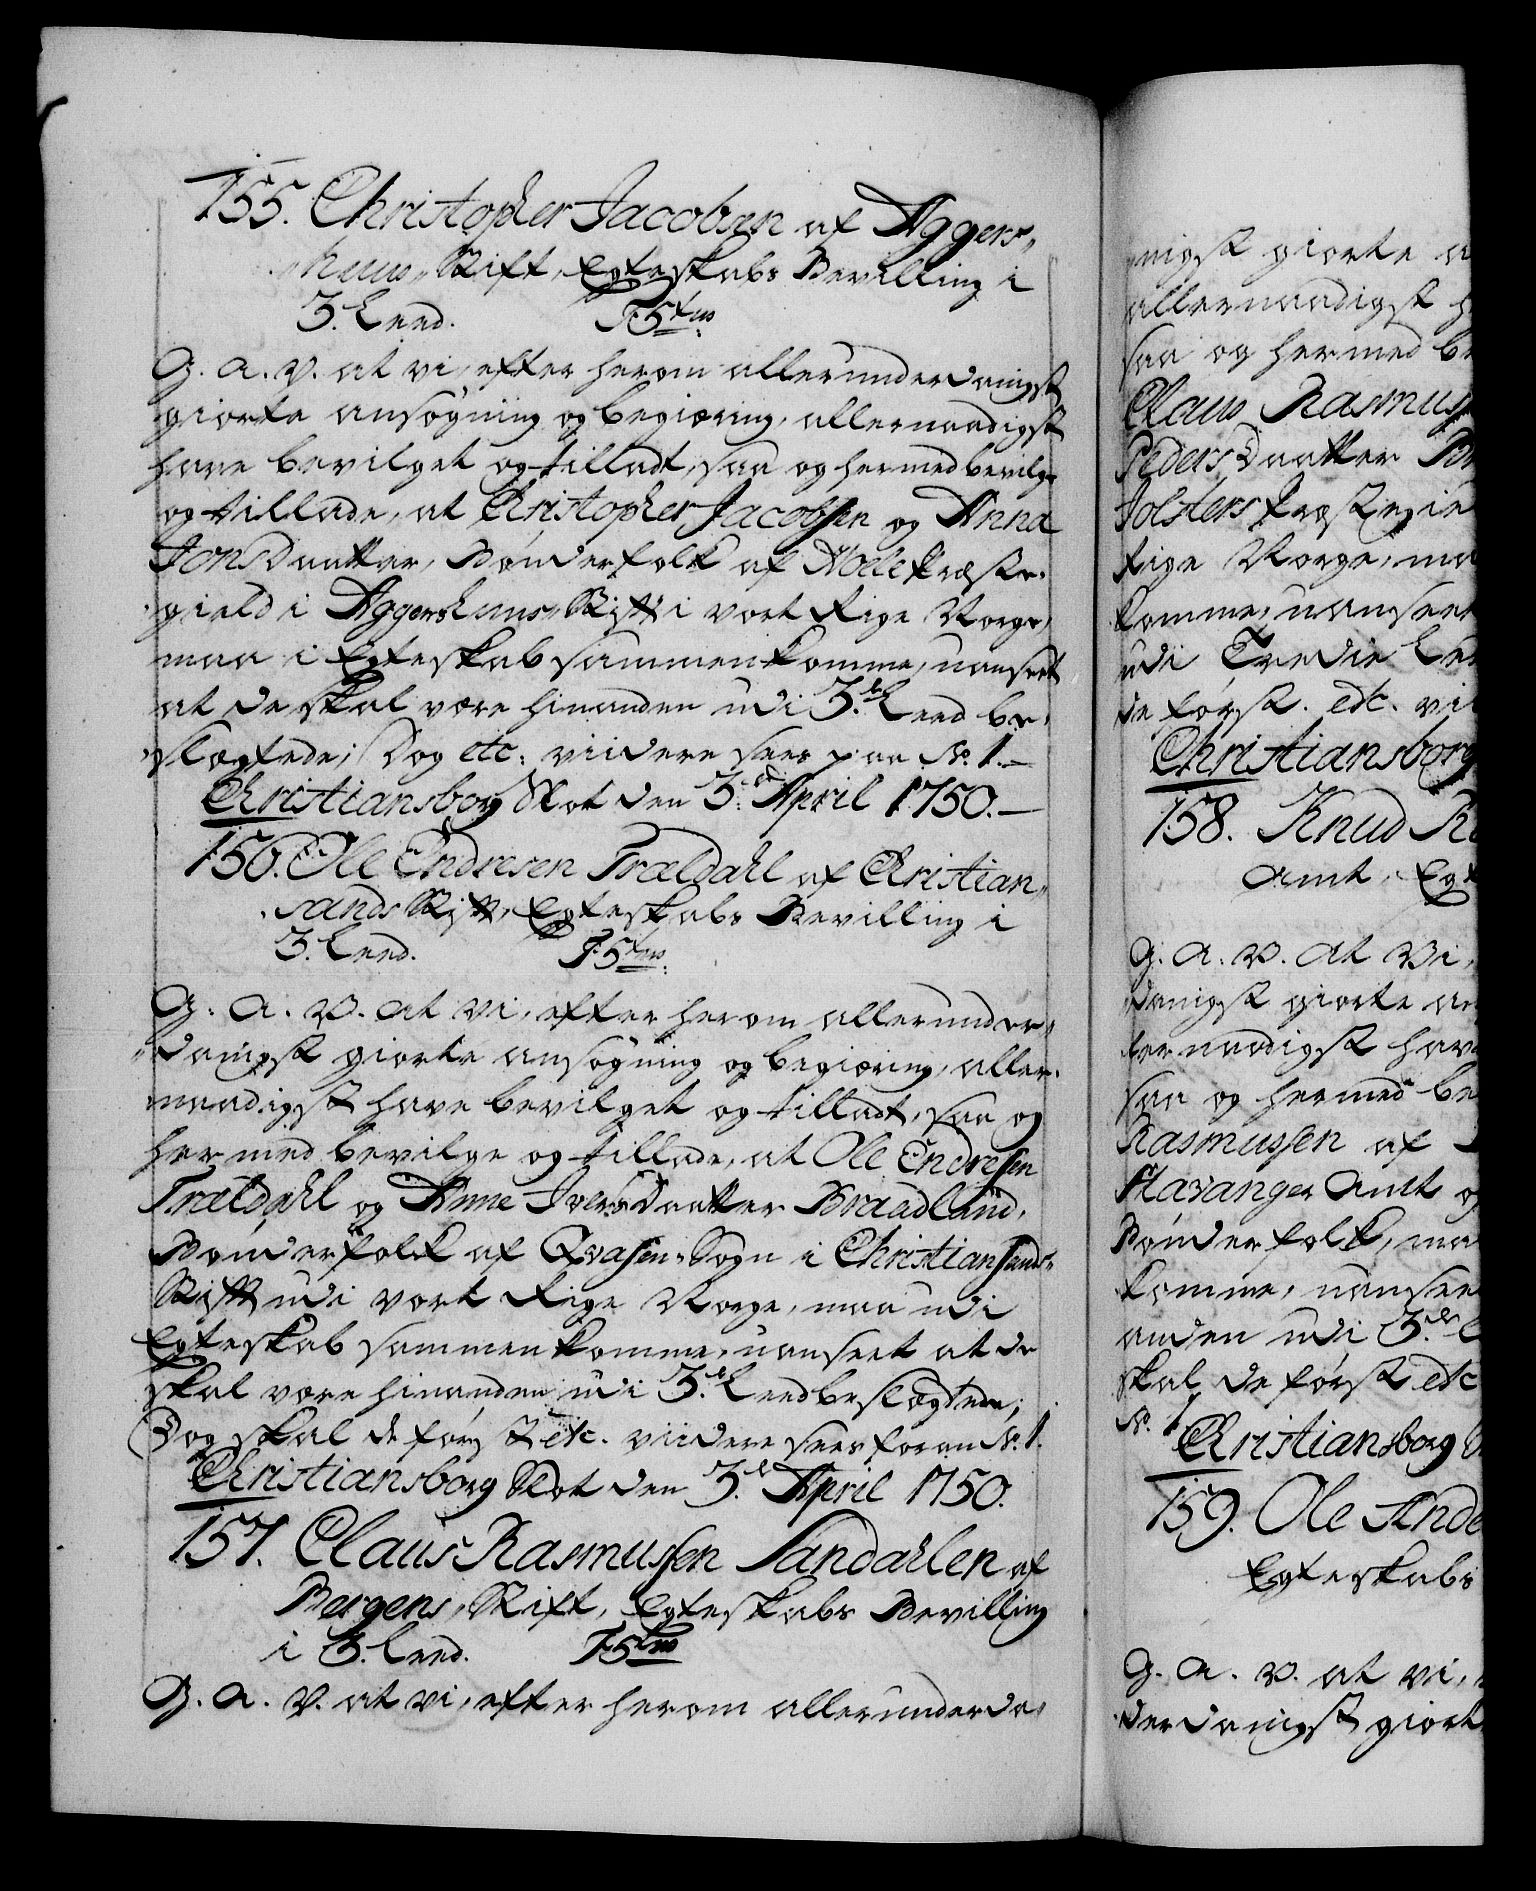 155. Christopher Jacobsen af Aggers-
huus Stift, Egteskabs Bevilling i
3. Leed.
G. A. V. at vi, efter herom allerunderdanigst
giorte ansøgning og begiæring, allernaadigst
have bevilget og tilladt, saa og hermed bevilge
og tillade, at Christopher Jacobsen og Anna
Jons Daatter, Bønderfolk af Præste-
gield i Aggershuus Stift i vort Rige Norge,
maa i Egteskab sammenkomme, uanseet
at de skal være hinanden udi 3de Leed be-
slægtede; Dog etc. viidere sees paa No. 1.
Christiansborg Slot den 3de April 1750.
156. Ole Endresen Trældahl af Christian-
sands Stift, Egteskabs Bevilling i
3. Leed.
G. A. V. at vi, efter herom allerunder-
danigst giorte ansøgning og begiæring, aller-
naadigst have bevilget og tilladt, saa og
hermed bevilge og tillade, at Ole Endresen
Trældahl og Anne Ivers Daatter Braadland,
Bønderfolk af Qvasen-Sogn i Christiansands-
Stift udi vort Rige Norge, maa udi
Egteskab sammenkomme, uanseet at de
skal være hinanden udi 3de Leed beslægtede;
Dog skal de først etc. viidere sees foran No. 1.
Christiansborg Slot den 3de April 1750.
157. Claus Rasmussen Sandahlen af
Bergens Stift, Egteskabs Bevilling
i 3. Leed.
G. A. V. at vi, efter herom allerunderda-
nigst giorte
allernaadigst
saa og hermed
Claus Rasmuss
Peders Daatter
Jolsters Præstegie
Rige Norge, ma
komme, uanseet
udi Tredie Lee
de først. etc. vii
Christiansborg
158. Knud
Amt, Egt
G. A. V. at Vi,
danigst giorte an
lernaadigst hav
saa og hermed be
Rasmussen af
Stavanger Amt og
Bønderfolk, ma
komme, uansee
anden udi 3de
skal de først etc
No. 1
Christiansborg
159. Ole Ande
Egteskabs
G. A. V. at vi,
derdanigst giort